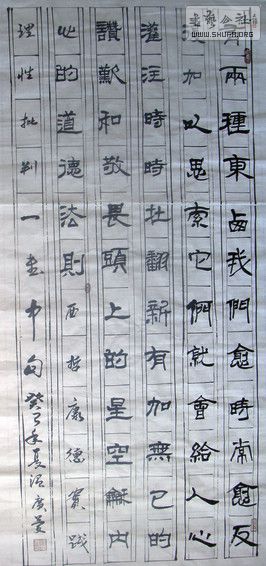 書藝公社
WWW.SHUFA.ORG
有兩種東西我們愈時常愈反
復加以思索它們就會給人心
灌注時時在翻新有加無已的
讚歎和敬畏頭上的星空龢内
心的道德法則西哲康德實踐
理性批判一書中句癸巳年夏